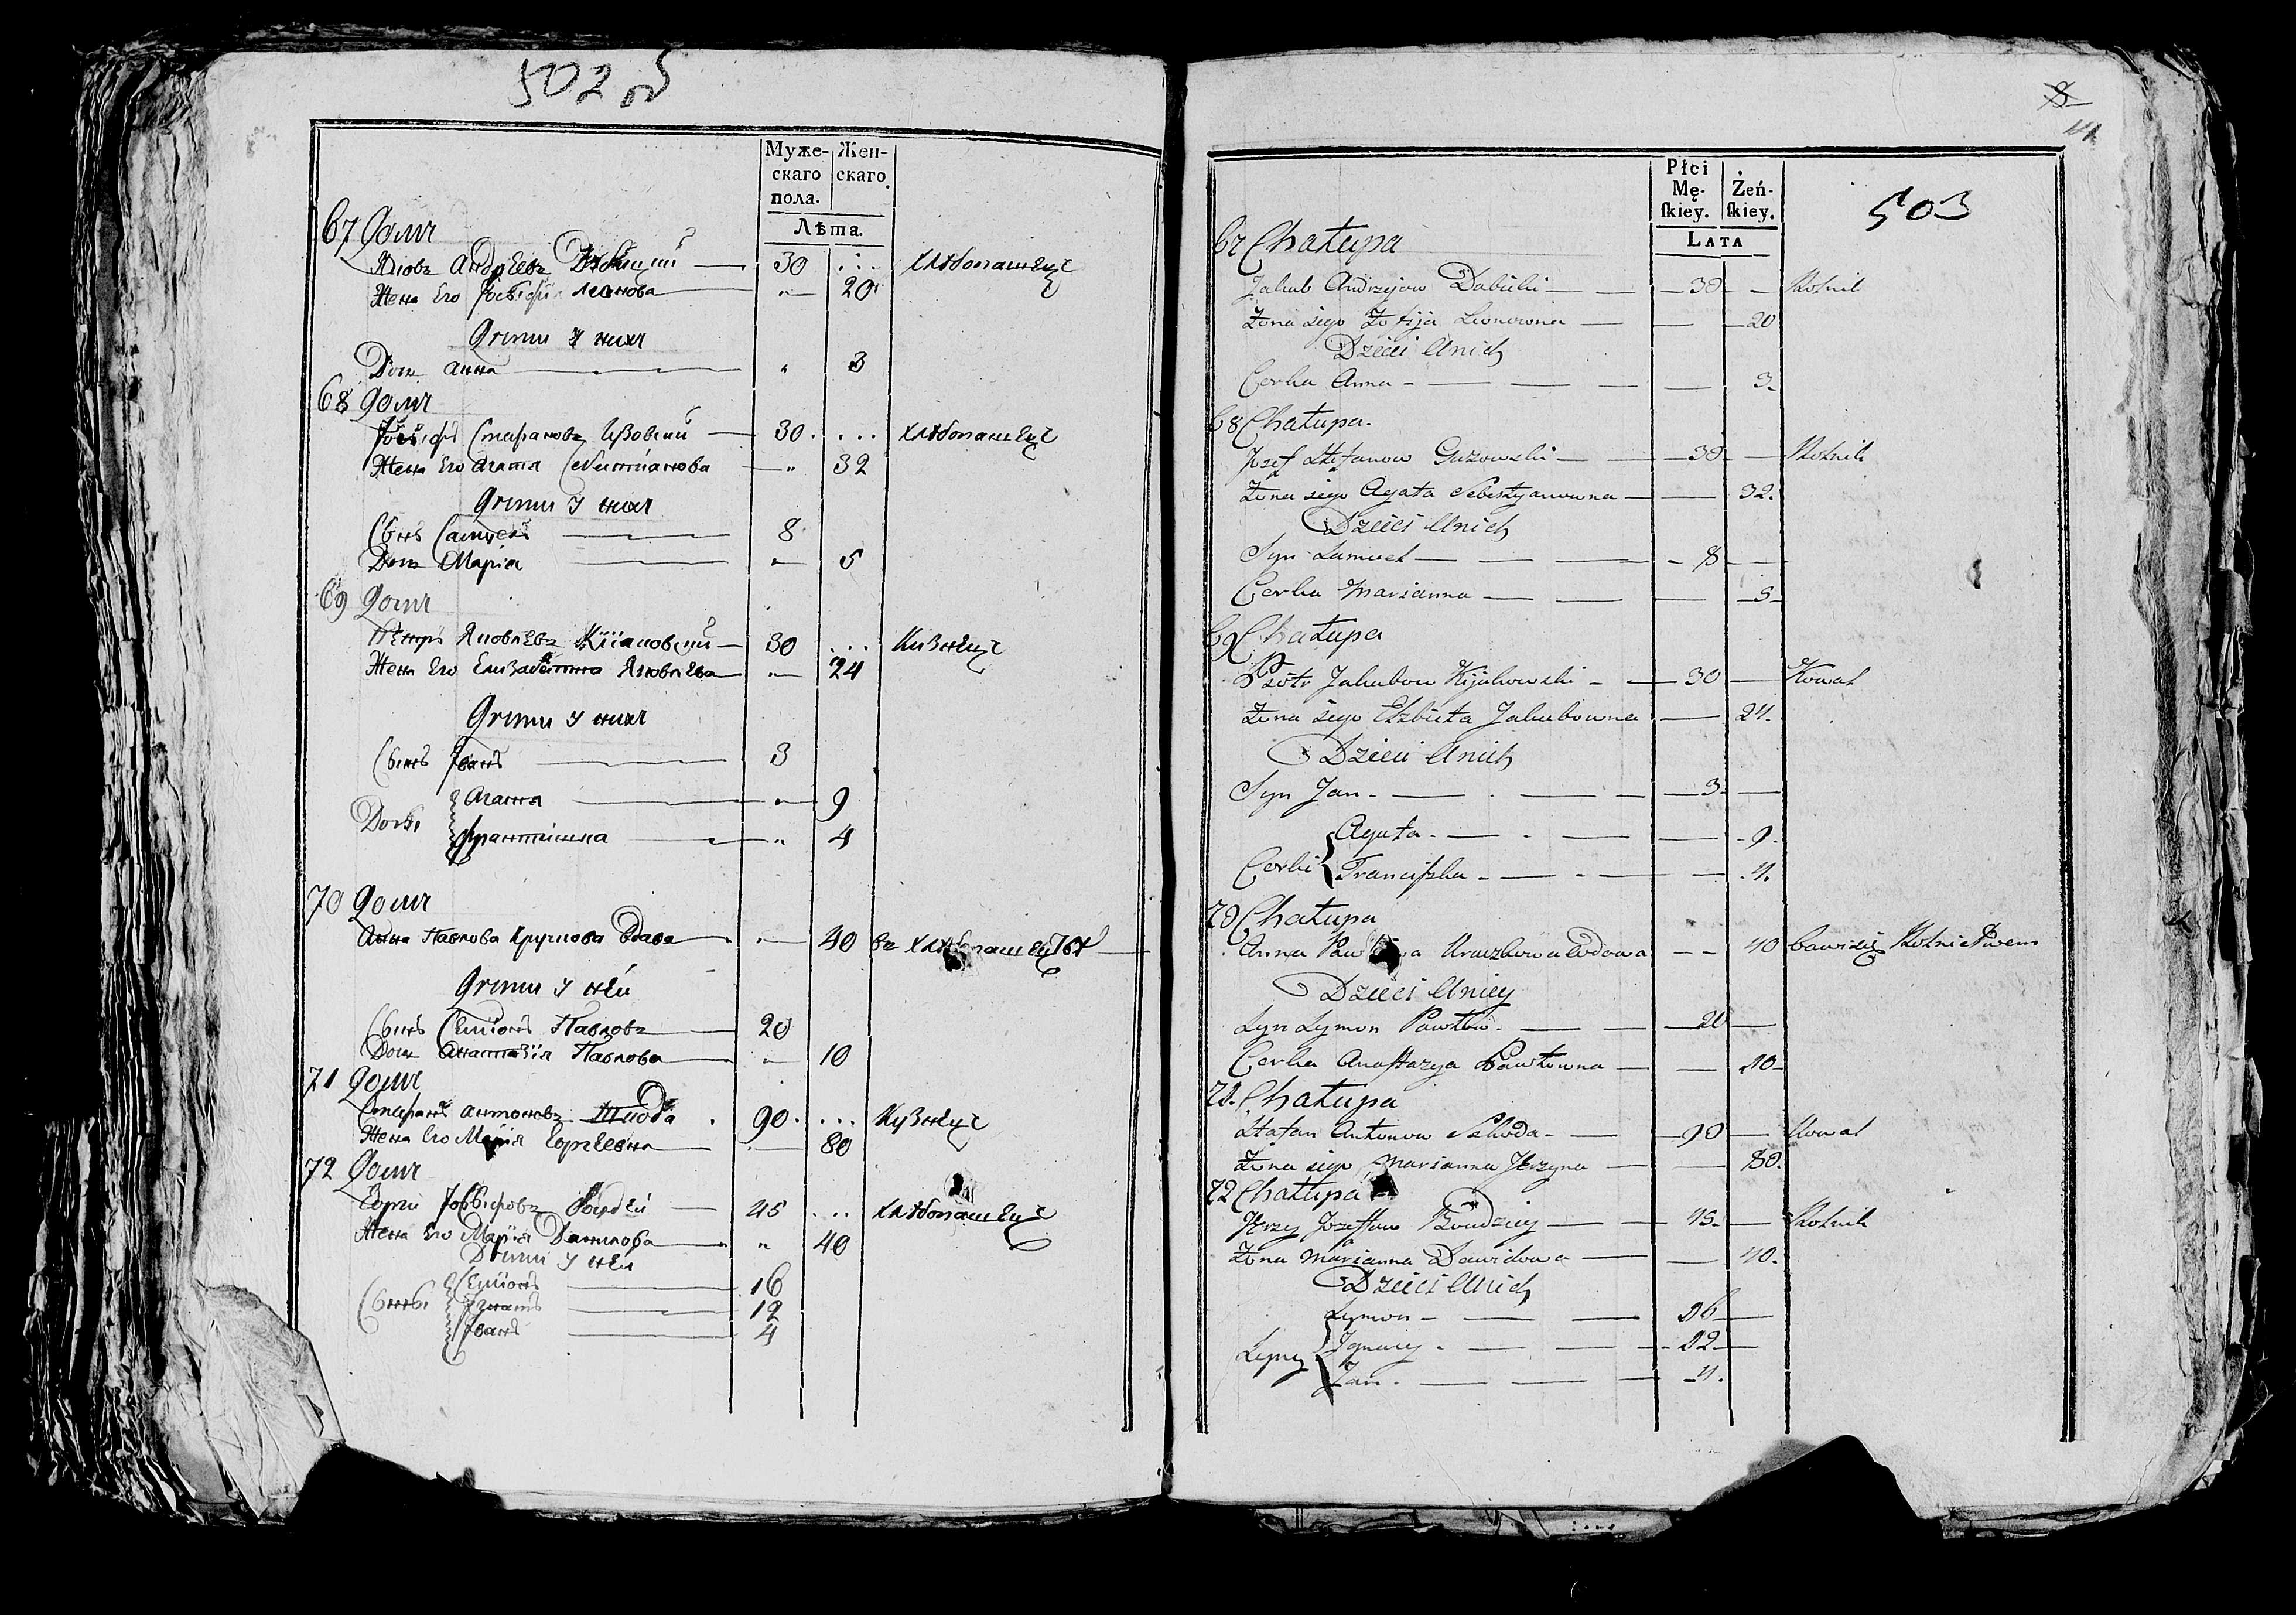 502 об
Муже-
скаго
пола.
Жен-
скаго.
Лѣта.
67 Домъ
Яковъ Андрѣевъ 30 хлѣбопашецъ
Жена Его Леонова 20
Дѣти у нихъ
Дочь Анна 3
68 Домъ
Іосифъ Стефановъ Гузовскій 30 хлѣбопашецъ
Жена Его Агата 32
Дѣти у нихъ
Сынъ Самуель 8
Дочь Марія 5
69 Домъ
Петръ Яковлевъ Кіяковскій 30 Кузнецъ
Жена Его Елизабетта Яковлева 24
Дѣти у нихъ
Сынъ Іванъ 3
Дочьки Агата 9
Франтишка 4
70 Домъ
Анна Павлова Вдава 40 въ хлѣбопашествѣ
Дѣти у ней
Сынъ Семіонъ Павловъ 20
Дочь Анастазія Павлова 10
71 Домъ
Стефанъ Антоновъ Шкода 90 Кузнецъ
Жена Его Марія 80
72 Домъ
Георги Іосифовъ 45 хлѣбопашецъ
Жена Его Марія 40
Дѣти у ней
Семіонъ 16
Сыны Игнатъ 12
Іванъ 4
8
503
Płci
Mę-
ſkiey.
Żeń-
ſkiey.
LATA
67 Chałupa
Jakub Andrzejow Dabicki 30 Rolnik
Zona iego Zofija Leonowna 20
Dzieci Unich
Corka Anna 3
68 Chałupa
Jozef Stefanow Guzowski 30 Rolnik
Zona iego Agata Sebestyanowna 32
Dzieci Unich
Syn Samuel 8
Corka Marianna 5
69 Chałupa
Piotr Jakubow Kijakowski 30 Kowal
Zona iego Elzbieta Jakubowna 24
Dzieci Unich
Syn Jan 3
Agata 9
Corki Franciſzka 4
70 Chałupa
Anna Wdowa 40 bawi się Rolnictwem
Dzieci Uniey
Syn Symon Pawłow 20
Corka Anaſtazya Pawłowna 10
71 Chałupa
Stafan Antonow Szkoda 90 Kowal
Zona iego Marianna 80
72 Chałupa
Jerzy Jozefow 45 Rolnik
Zona Marianna Dawidowa 40
Dzieci Unich
Symon 16
Syny Ignacy 12
Jan 4